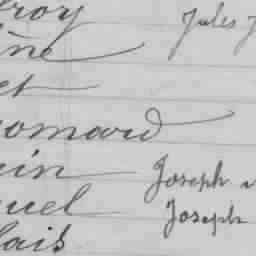 roy Jules J
ne
et
omard
in Joseph
uel Joseph
lais